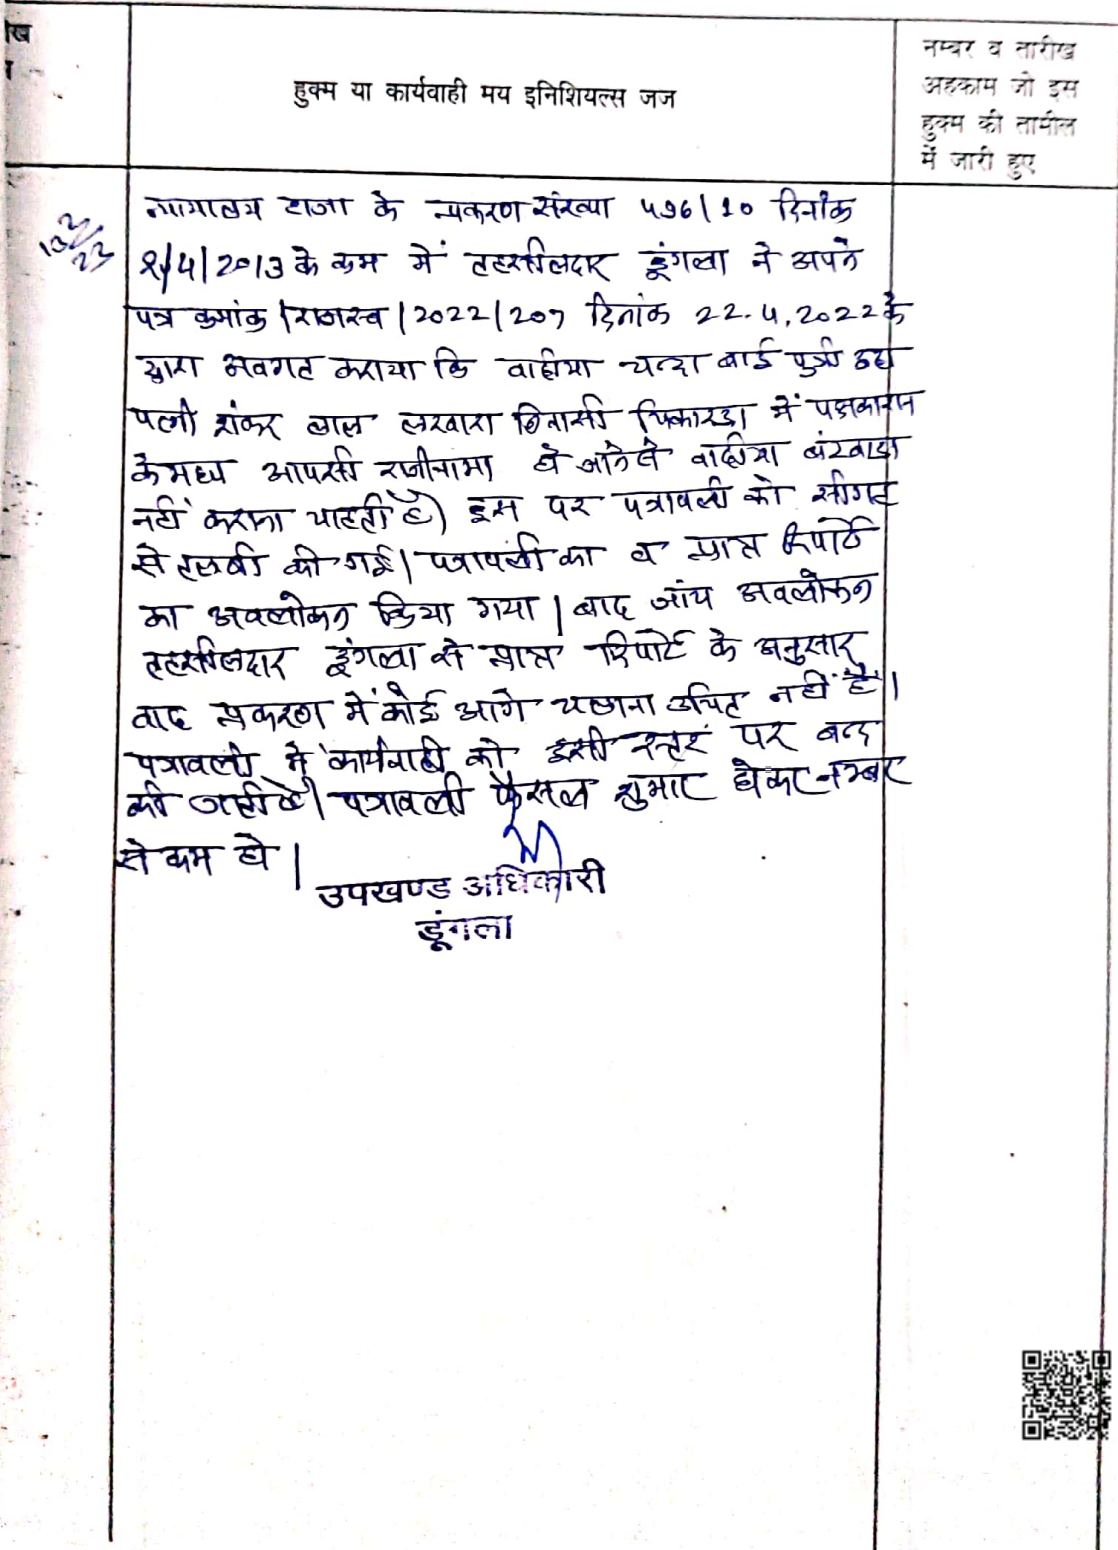 ख
हुक्म या कार्यवाही मय इनिशियल्स जज
नम्बर व तारीख
अहकाम जो इस
हुक्म की तामील
में जारी हुए
न्यायालय हाजा के प्रकरण संख्या 496/10 दिनांक
4/2013 के क्रम में तहसीलदार डूंगला ने अपने
पत्र क्रमांक /राजस्व/2022/207 दिनांक 22.4.2022 के
द्वारा अवगत कराया कि वादीया चन्दा बाई पुत्री
पत्नी शंकर लाल लखारा निवासी चिकारडा में पक्षकारान
के मध्य आपसी राजीनामा हो जाने से वादीया बंटवाडा
नहीं कराना चाहती है) इस पर पत्रावली को सीगह
से तलबी की गई। पत्रावली का व प्राप्त रिपोर्ट
का अवलोकन किया गया। बाद जांच अवलोकन
तहसीलदार डूंगला से प्राप्त रिपोर्ट के अनुसार
वाद प्रकरण में कोई आगे चलाना उचित नहीं है।
पत्रावली में कार्यवाही को इसी स्तर पर बन्द
की जाती है। पत्रावली फैसल शुमार होकर नम्बर
से कम हो।
उपखण्ड अधिकारी
डूंगला